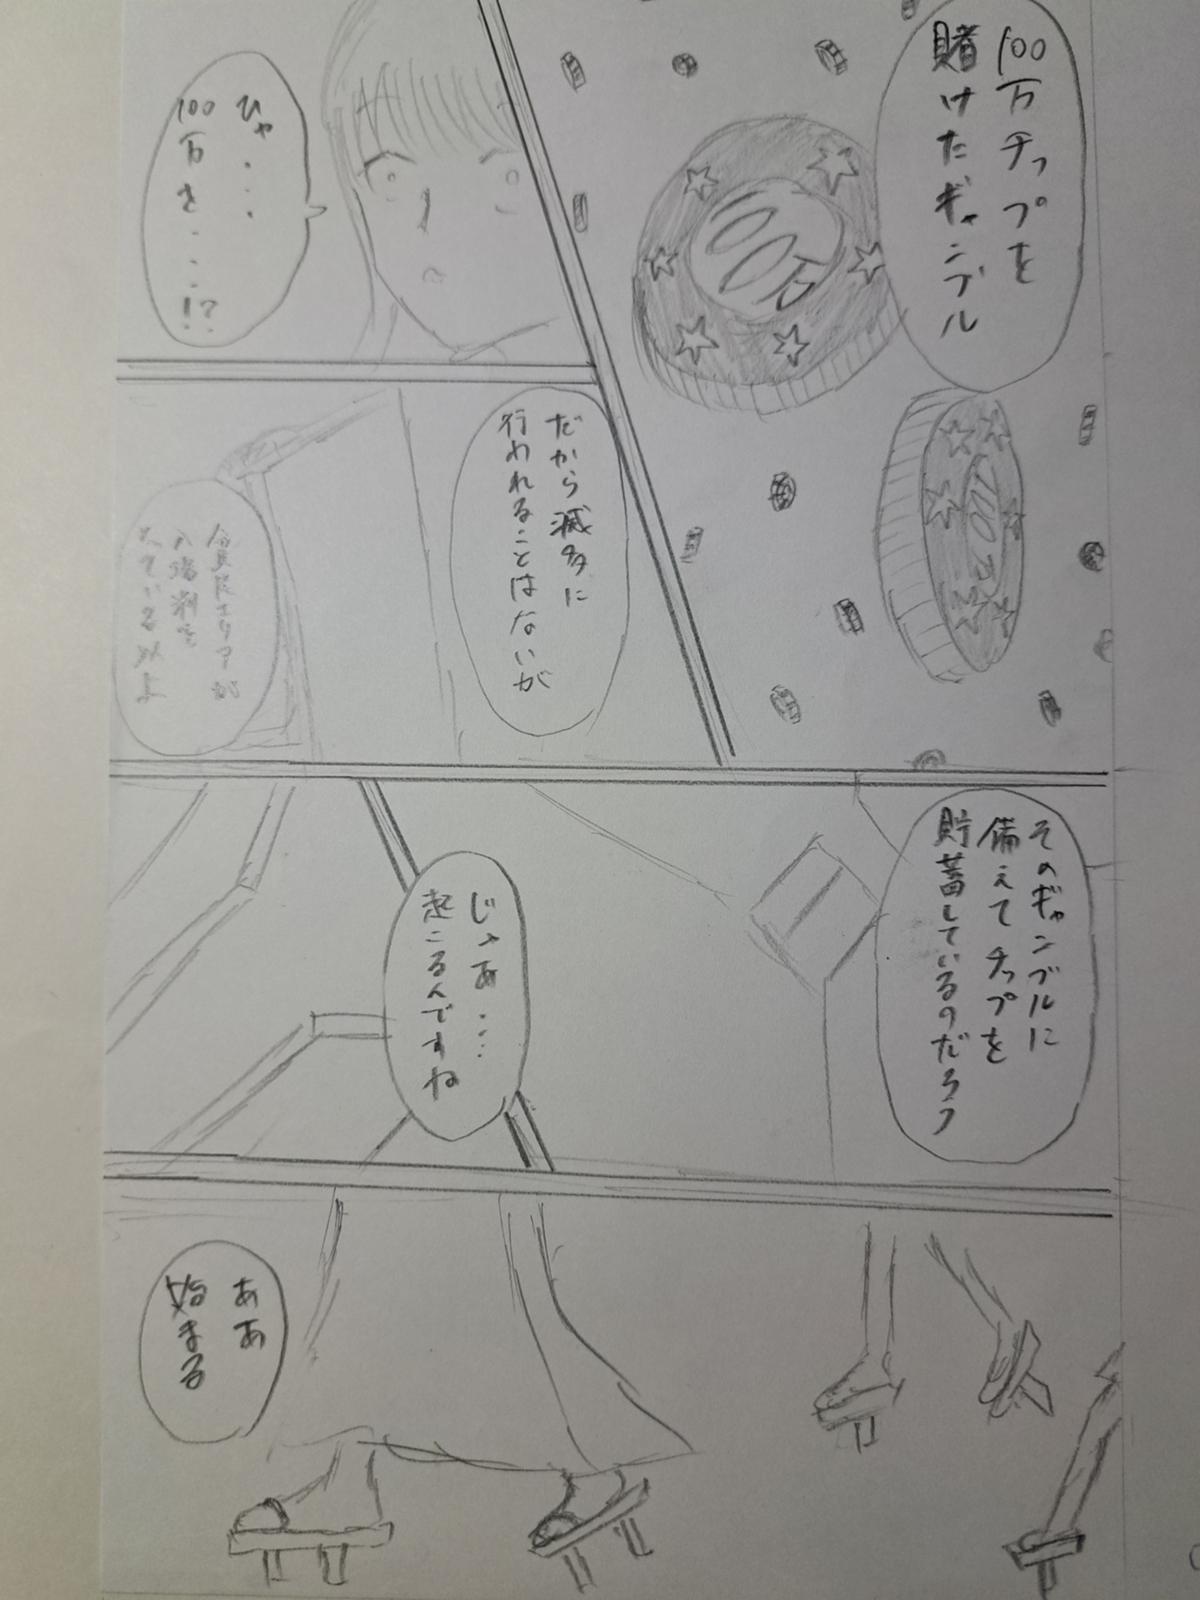 100万チップを
賭けたギャンブル
100万
100万
ひゃ・・・
100万を・・・!?
だから滅多に
行われることはないが
会員民エリアが
入場料を
えている以上
そのギャンブルに
備えてチップを
貯蓄しているのだろう
じゃあ・・・
起こるんですね
ああ
始まる